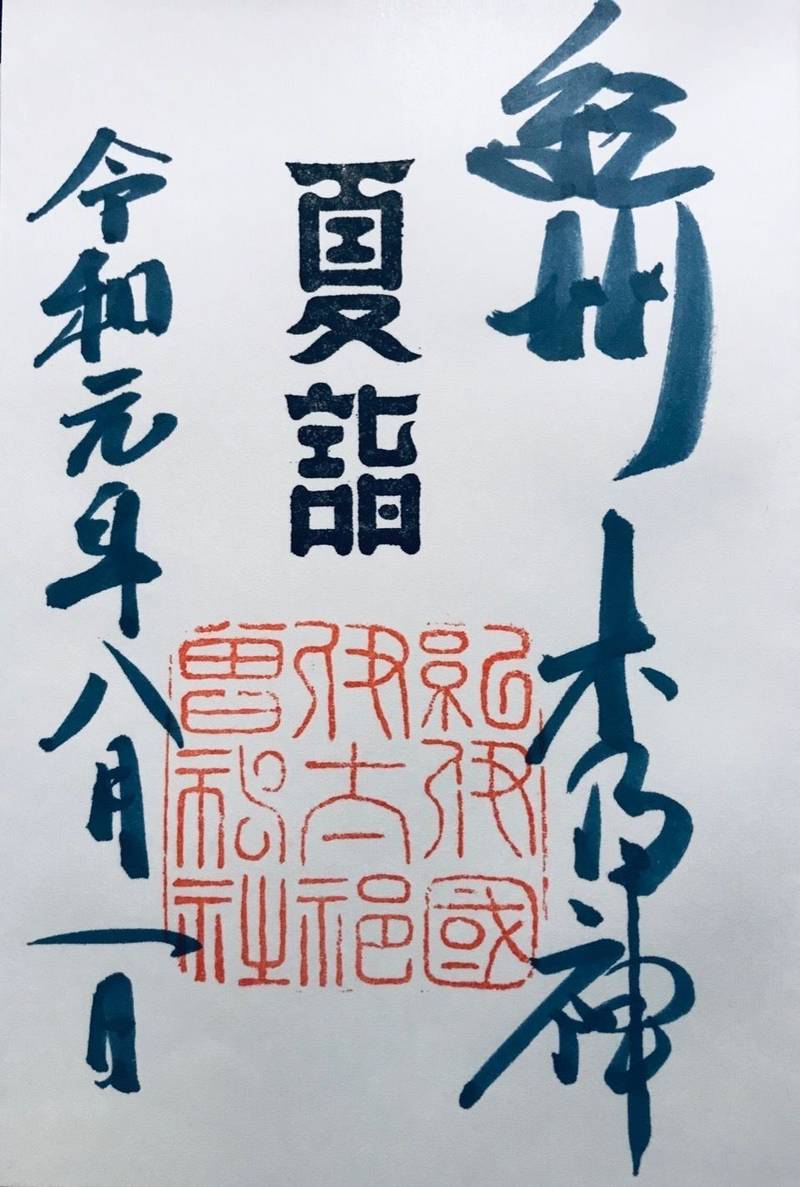 紀州 木乃神
夏詣
紀伊國
伊太祁
曽神社
令和元年八月一日